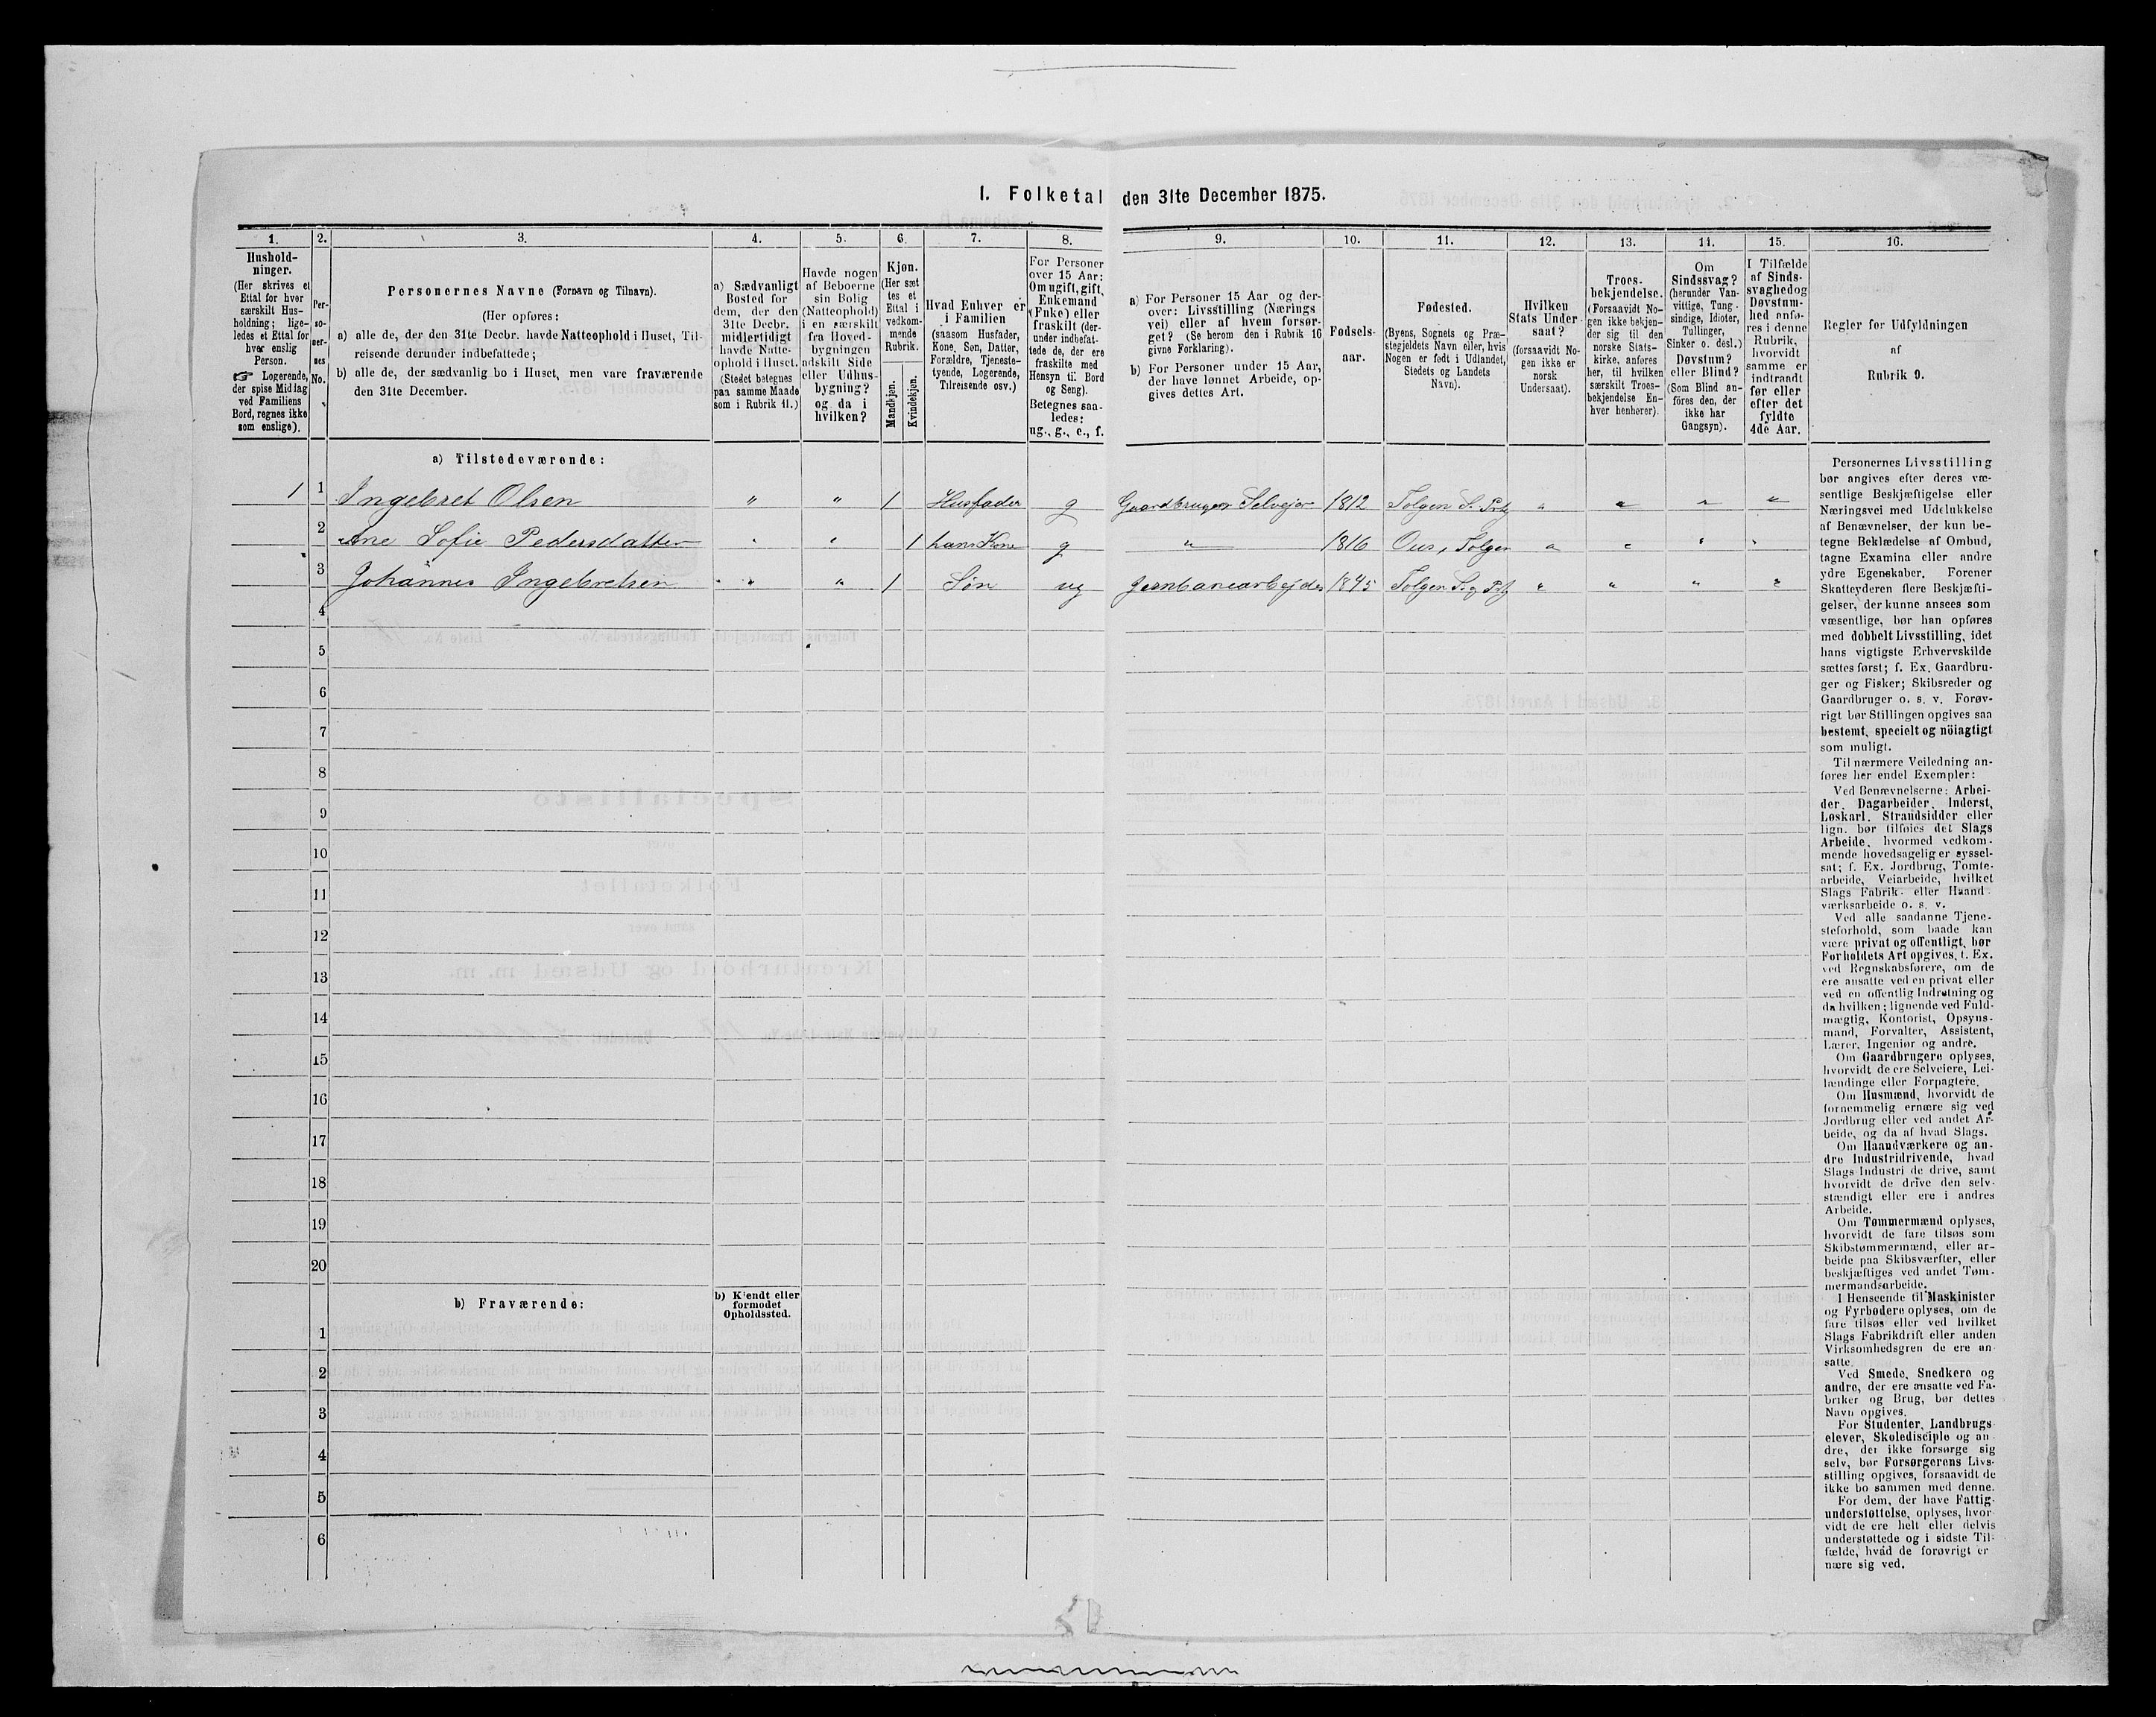 I. Folketal den 31te December 1875.
1. 2. 3. 4. 5. 6. 7. 8. 9. 10. 11. 12. 13. 14. 15. 16.
Hushold-
ninger.
(Her skrives et
Ettal for hver
særskilt Hus-
holdning; lige-
ledes et Ettal for
hver enslig
Person.
☞ Logerende,
der spise Middag
ved Familiens
Bord, regnes ikke
som enslige).
Per-
so-
ner-
nes
No.
Personernes Navne (Fornavn og Tilnavn).
(Her opføres:
a) alle de, der den 31te Decbr. havde Natteophold i Huset, Til-
reisende derunder indbefattede;
b) alle de, der sædvanlig bo i Huset, men vare fraværende
den 31te December.
a) Sædvanligt
Bosted for
dem, der den
31te Decbr.
midlertidigt
havde Natte-
ophold i Huset.
(Stedet betegnes
paa samme Maade
som i Rubrik 11.)
Havde nogen
af Beboerne
sin Bolig
(Natteophold)
i en særskilt
fra Hoved-
bygningen
adskilt Side
eller Udhus-
bygning?
og da i
hvilken?
Kjøn.
(Her sæt
tes et
Ettal i
vedkom-
mende
Rubrik.
Mandkjøn.
Kvindekjøn.
Hvad Enhver er
i Familien
(saasom Husfader,
Kone, Søn, Datter,
Forældre, Tjeneste-
tyende, Logerende,
Tilreisende osv.)
For Personer
over 15 Aar:
Om ugift, gift,
Enkemand
(Enke) eller
fraskilt (der-
under indbefat-
tede de, der ere
fraskilte med
Hensyn til Bord
og Seng).
Betegnes saa-
ledes:
ug., g., e., f.
a) For Personer 15 Aar og der-
over: Livsstilling (Nærings
vei) eller af hvem forsør-
get? (Se herom den i Rubrik 16
givne Forklaring).
b) For Personer under 15 Aar,
der have lønnet Arbeide, op-
gives dettes Art.
Fødsels-
aar.
Fødested.
(Byens, Sognets og Præ-
stegjeldets Navn eller, hvis
Nogen er født i Udlandet,
Stedets og Landets
Navn).
Hvilken
Stats Under-
saat?
(forsaavidt No-
gen ikke er
norsk
Undersaat).
Troes-
bekjendelse.
(Forsaavidt No-
gen ikke bekjen-
der sig til den
norske Stats-
kirke, anføres
her, til hvilken
særskilt Troes-
bekjendelse En-
hver henhører).
Om
Sindssvag?
(herunder Van-
vittige, Tung-
sindige, Idioter,
Tullinger,
Sinker o. desl.)
Døvstum?
eller Blind?
(Som Blind an-
føres den, der
ikke har
Gangsyn).
I Tilfælde
af Sinds-
svaghed og
Døvstum-
hed anfø-
res i denne
Rubrik,
hvorvidt
samme er
indtraadt
før eller
efter det
fyldte
4de Aar.
Regler for Udfyldningen
af
Rubrik 9.
a) Tilstedeværende:
1 1 Ingebret Olsen " " 1 Husfader g Gaardbruger Selveier 1812 Tolgen " " " "
2 Ane Sofie Pedersdatter " " 1 hans Kone g " 1816 Ous, Tolgen " " " "
3 Johannes Ingebretsen " " 1 Søn ug Jernbanearbejder 1845 Tolgen " " " "
4
5
6
7
8
9
10
11
12
13
14
15
16
17
18
19
20
b) Fraværende: b) Kjendt eller
formodet
Opholdssted.
1
2
3
4
5
6
Personernes Livsstilling
bør angives efter deres væ-
sentlige Beskjæftigelse eller
Næringsvei med Udelukkelse
af Benævnelser, der kun be-
tegne Beklædelse af Ombud,
tagne Examina eller andre
ydre Egenskaber. Forener
Skatteyderen flere Beskjæfti-
gelser, der kunne ansees som
væsentlige, bør han opføres
med dobbelt Livsstilling, idet
hans vigtigste Erhvervskilde
sættes først; f. Ex. Gaardbru-
ger og Fisker; Skibsreder og
Gaardbruger o. s. v. Forøv-
rigt bør Stillingen opgives saa
bestemt, specielt og nöiagtigt
som muligt.
Til nærmere Veiledning an-
føres her endel Exempler:
Ved Benævnelserne: Arbei-
der, Dagarbeider, Inderst,
Løskarl, Strandsidder eller
lign. bør tilføies det Slags
Arbeide, hvormed vedkom-
mende hovedsagelig er syssel-
sat; f. Ex. Jordbrug, Tomte-
arbeide, Veiarbeide, hvilket
Slags Fabrik- eller Haand-
værksarbeide o. s. v.
Ved alle saadanne Tjene-
steforhold, som baade kan
være privat og offentligt, bør
Forholdets Art opgives, f. Ex.
ved Regnskabsførere, om de
ere ansatte ved en privat eller
ved en offentlig Indretning og
da hvilken; lignende ved Fuld-
mægtig, Kontorist, Opsyns-
mand, Forvalter, Assistent,
Lærer, Ingeniør og andre.
Om Gaardbrugere oplyses,
hvorvidt de ere Selveiere, Lei-
lændinge eller Forpagtere.
Om Husmænd, hvorvidt de
fornemmelig ernære sig ved
Jordbrug eller ved andet Ar-
beide, og da af hvad Slags.
Om Haandværkere og an-
dre Industridrivende, hvad
Slags Industri de drive, samt
hvorvidt de drive den selv-
stændigt eller ere i andres
Arbeide.
Om Tømmermænd oplyses,
hvorvidt de fare tilsøs som
Skibstømmermænd, eller ar-
beide paa Skibsværfter, eller
beskjæftiges ved andet Tøm-
mermandsarbeide.
I Henseende til Maskinister
og Fyrbødere oplyses, om de
fare tilsøs eller ved hvilket
Slags Fabrikdrift eller anden
Virksomhedsgren de ere an-
satte.
Ved Smede, Snedkere og
andre, der ere ansatte ved Fa-
briker og Brug, bør dettes
Navn opgives.
For Studenter, Landbrugs-
elever, Skoledisciple og an-
dre, der ikke forsørge sig
selv, bør Forsørgerens Livs-
stilling opgives, forsaavidt de
ikke bo sammen med denne.
For dem, der have Fattig-
understøttelse, oplyses, hvor-
vidt de ere helt eller delvis
understøttede og i sidste Til-
fælde, hvad de forøvrigt er-
nære sig ved.